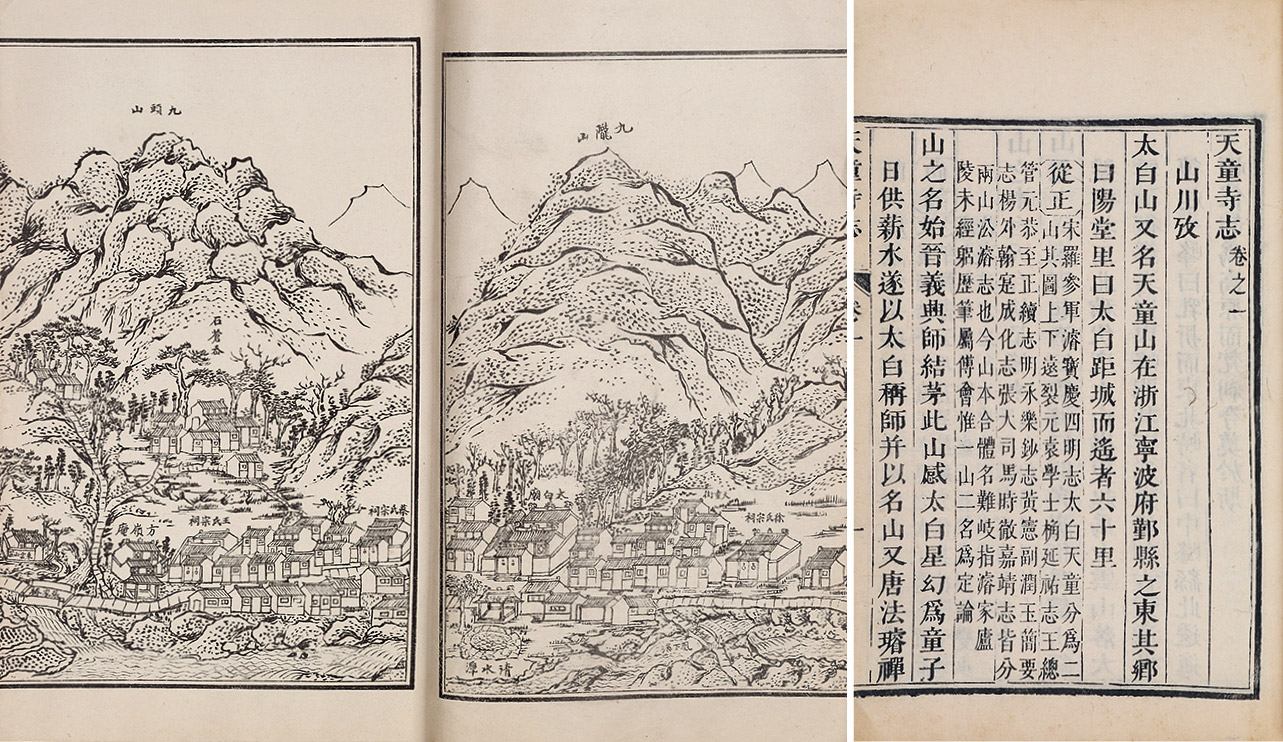 天童寺志卷之一
山川攷
太白山又名天童山在浙江寧波府鄞縣之東其鄉
曰陽堂里曰太白距城而遙者六十里
從正
宋羅參軍濬寶慶四明志太白天童分爲二
山其圖上下遼裂元袁學士桷延祐志王總
管元恭至正續志明永樂鈔志黃憲副潤玉簡要
志楊外翰寔成化志張大司馬時徹嘉靖志皆分
兩山㳂濬志也今山本合體名難岐指濬家廬
陵未經躬歷筆屬傅會惟一山二名爲定論
山之名始晉義興師結茅此山感太白星幻爲童子
日供薪水遂以太白稱師并以名山又唐法璿禪
天童寺志
卷一
一
九隴山
太白廟
天童街
徐氏宗祠
清水潭
九頭山
蔡氏宗祠
王氏宗祠
方嶺庵